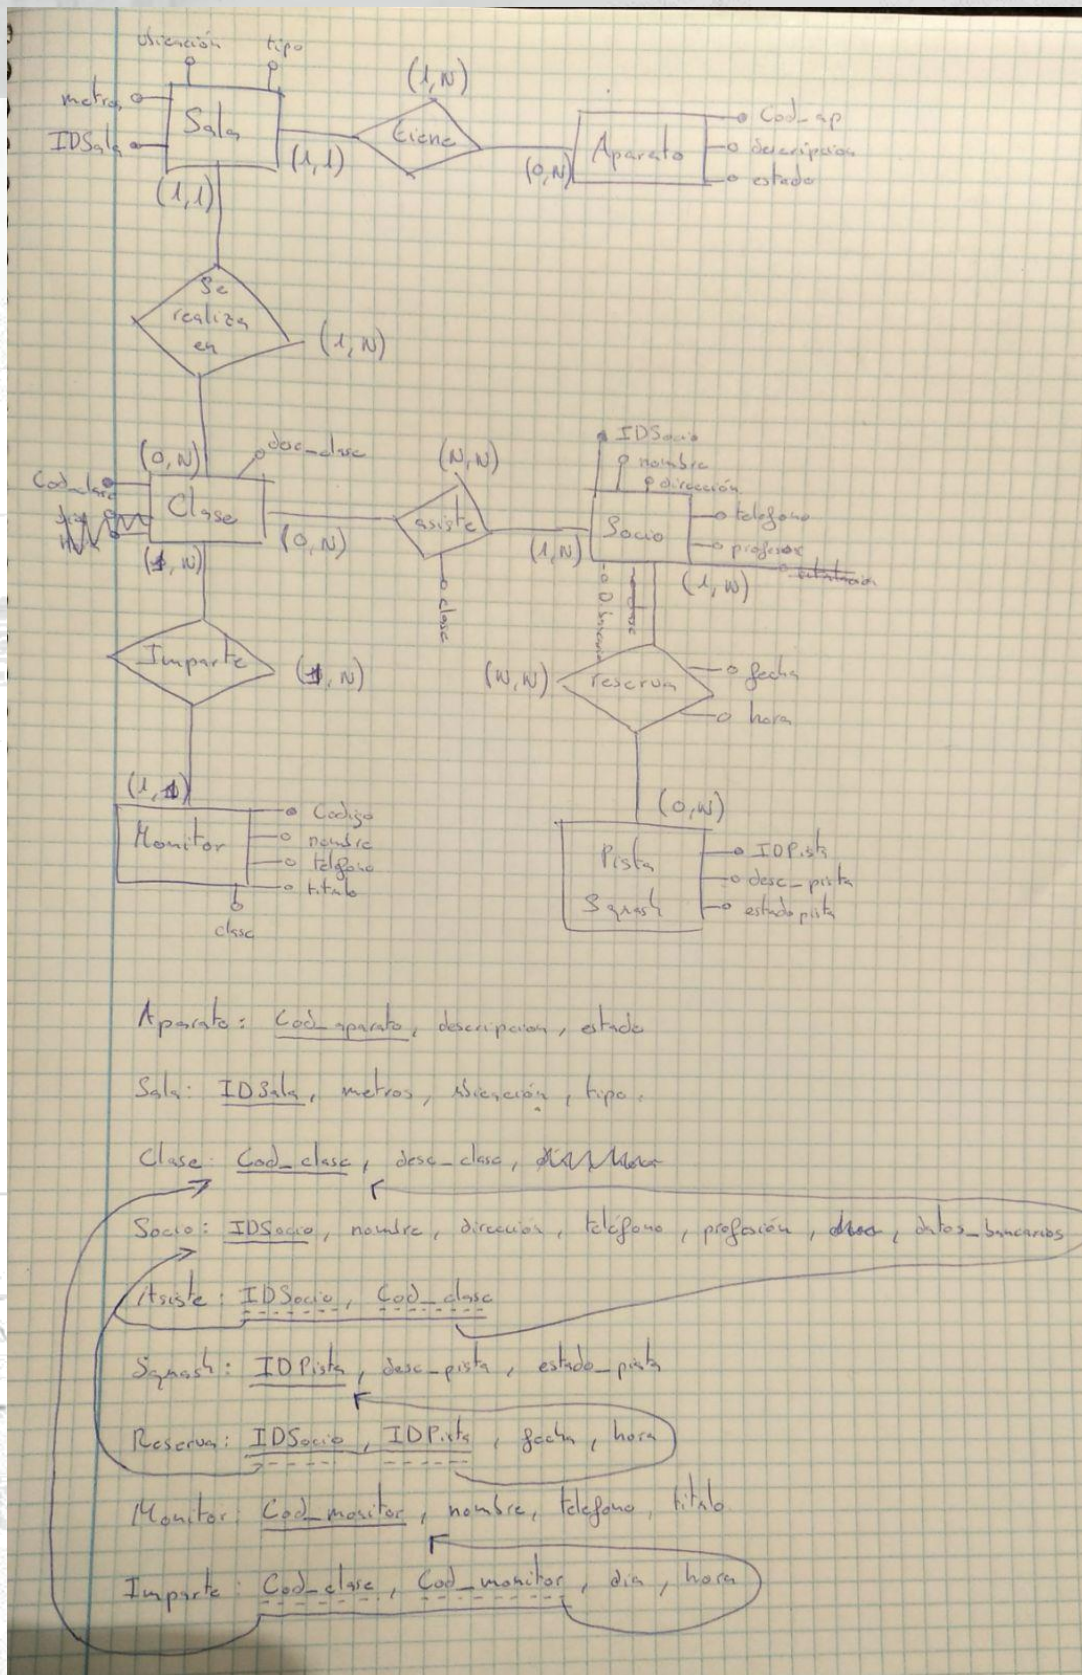 ubicación tipo
metros
IDSala
Sala
(1,1)
(1,1)
(1,N)
tiene
(0,N)
Aparato
Cod_ap
descripcion
estado
Se
realiza
en
(1,N)
(0,N)
desc_clase
Cod_clase
Clase
(0,N)
(N,N)
asiste
clase
(1,N)
IDSocio
nombre
dirección
Socio
telefono
(1,N)
Imparte
(N,N)
reserva
fecha
hora
Monitor
Codigo
nombre
telefono
titulo
clase
(0,N)
Pista
Squash
IDPista
desc_pista
estado pista
Aparato: Cod_aparato, descripcion, estado
Sala: IDSala, metros, ubicación, tipo.
Clase: Cod_clase, desc_clase,
Socio: IDSocio, nombre, dirección, teléfono, profesión, datos_bancarios
Asiste: IDSocio, Cod_clase
Squash: IDPista, desc_pista, estado_pista
Reserva: IDSocio, IDPista, fecha, hora
Monitor: Cod_monitor, nombre, telefono, titulo
Imparte: Cod_clase, Cod_monitor, dia, hora